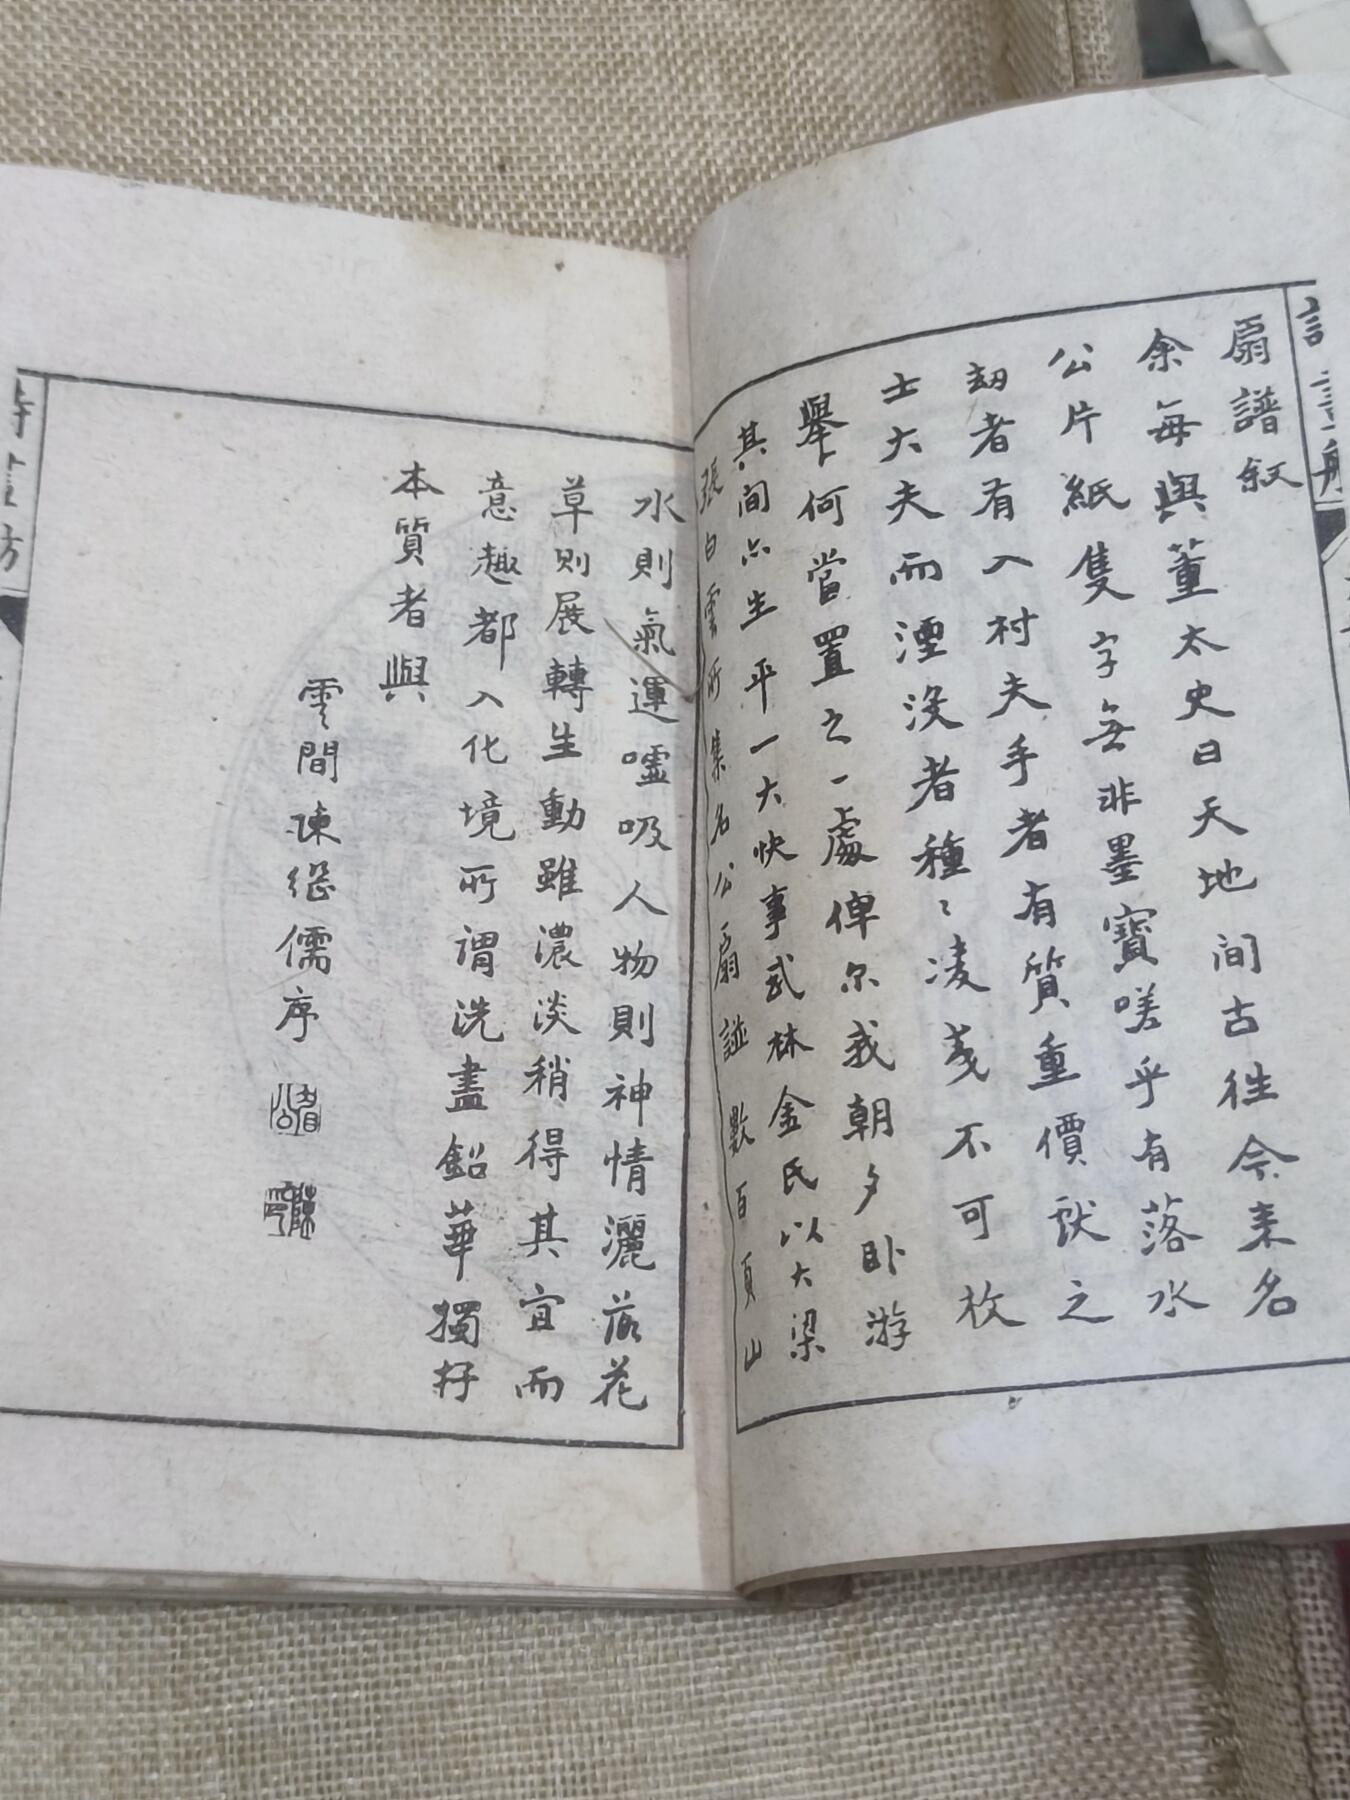 扇譜敘
余每與董太史曰天地間古往今來名
公片紙隻字無非墨寶嗟乎有落水
刼者有入村夫手者有質重價猒之
士大夫而湮沒者種〻凌茂不可枚
舉何當置之一處俾尔我朝夕卧游
其間亦生平一大快事武林金氏以大梁
張白雲所集名公扇譜數百頁山
水則氣運噓吸人物則神情灑落花
草則展轉生動雖濃淡稍得其宜而
意趣都入化境所謂洗盡鉛華獨存
本質者與
雲間陳繼儒序
詩畫舫